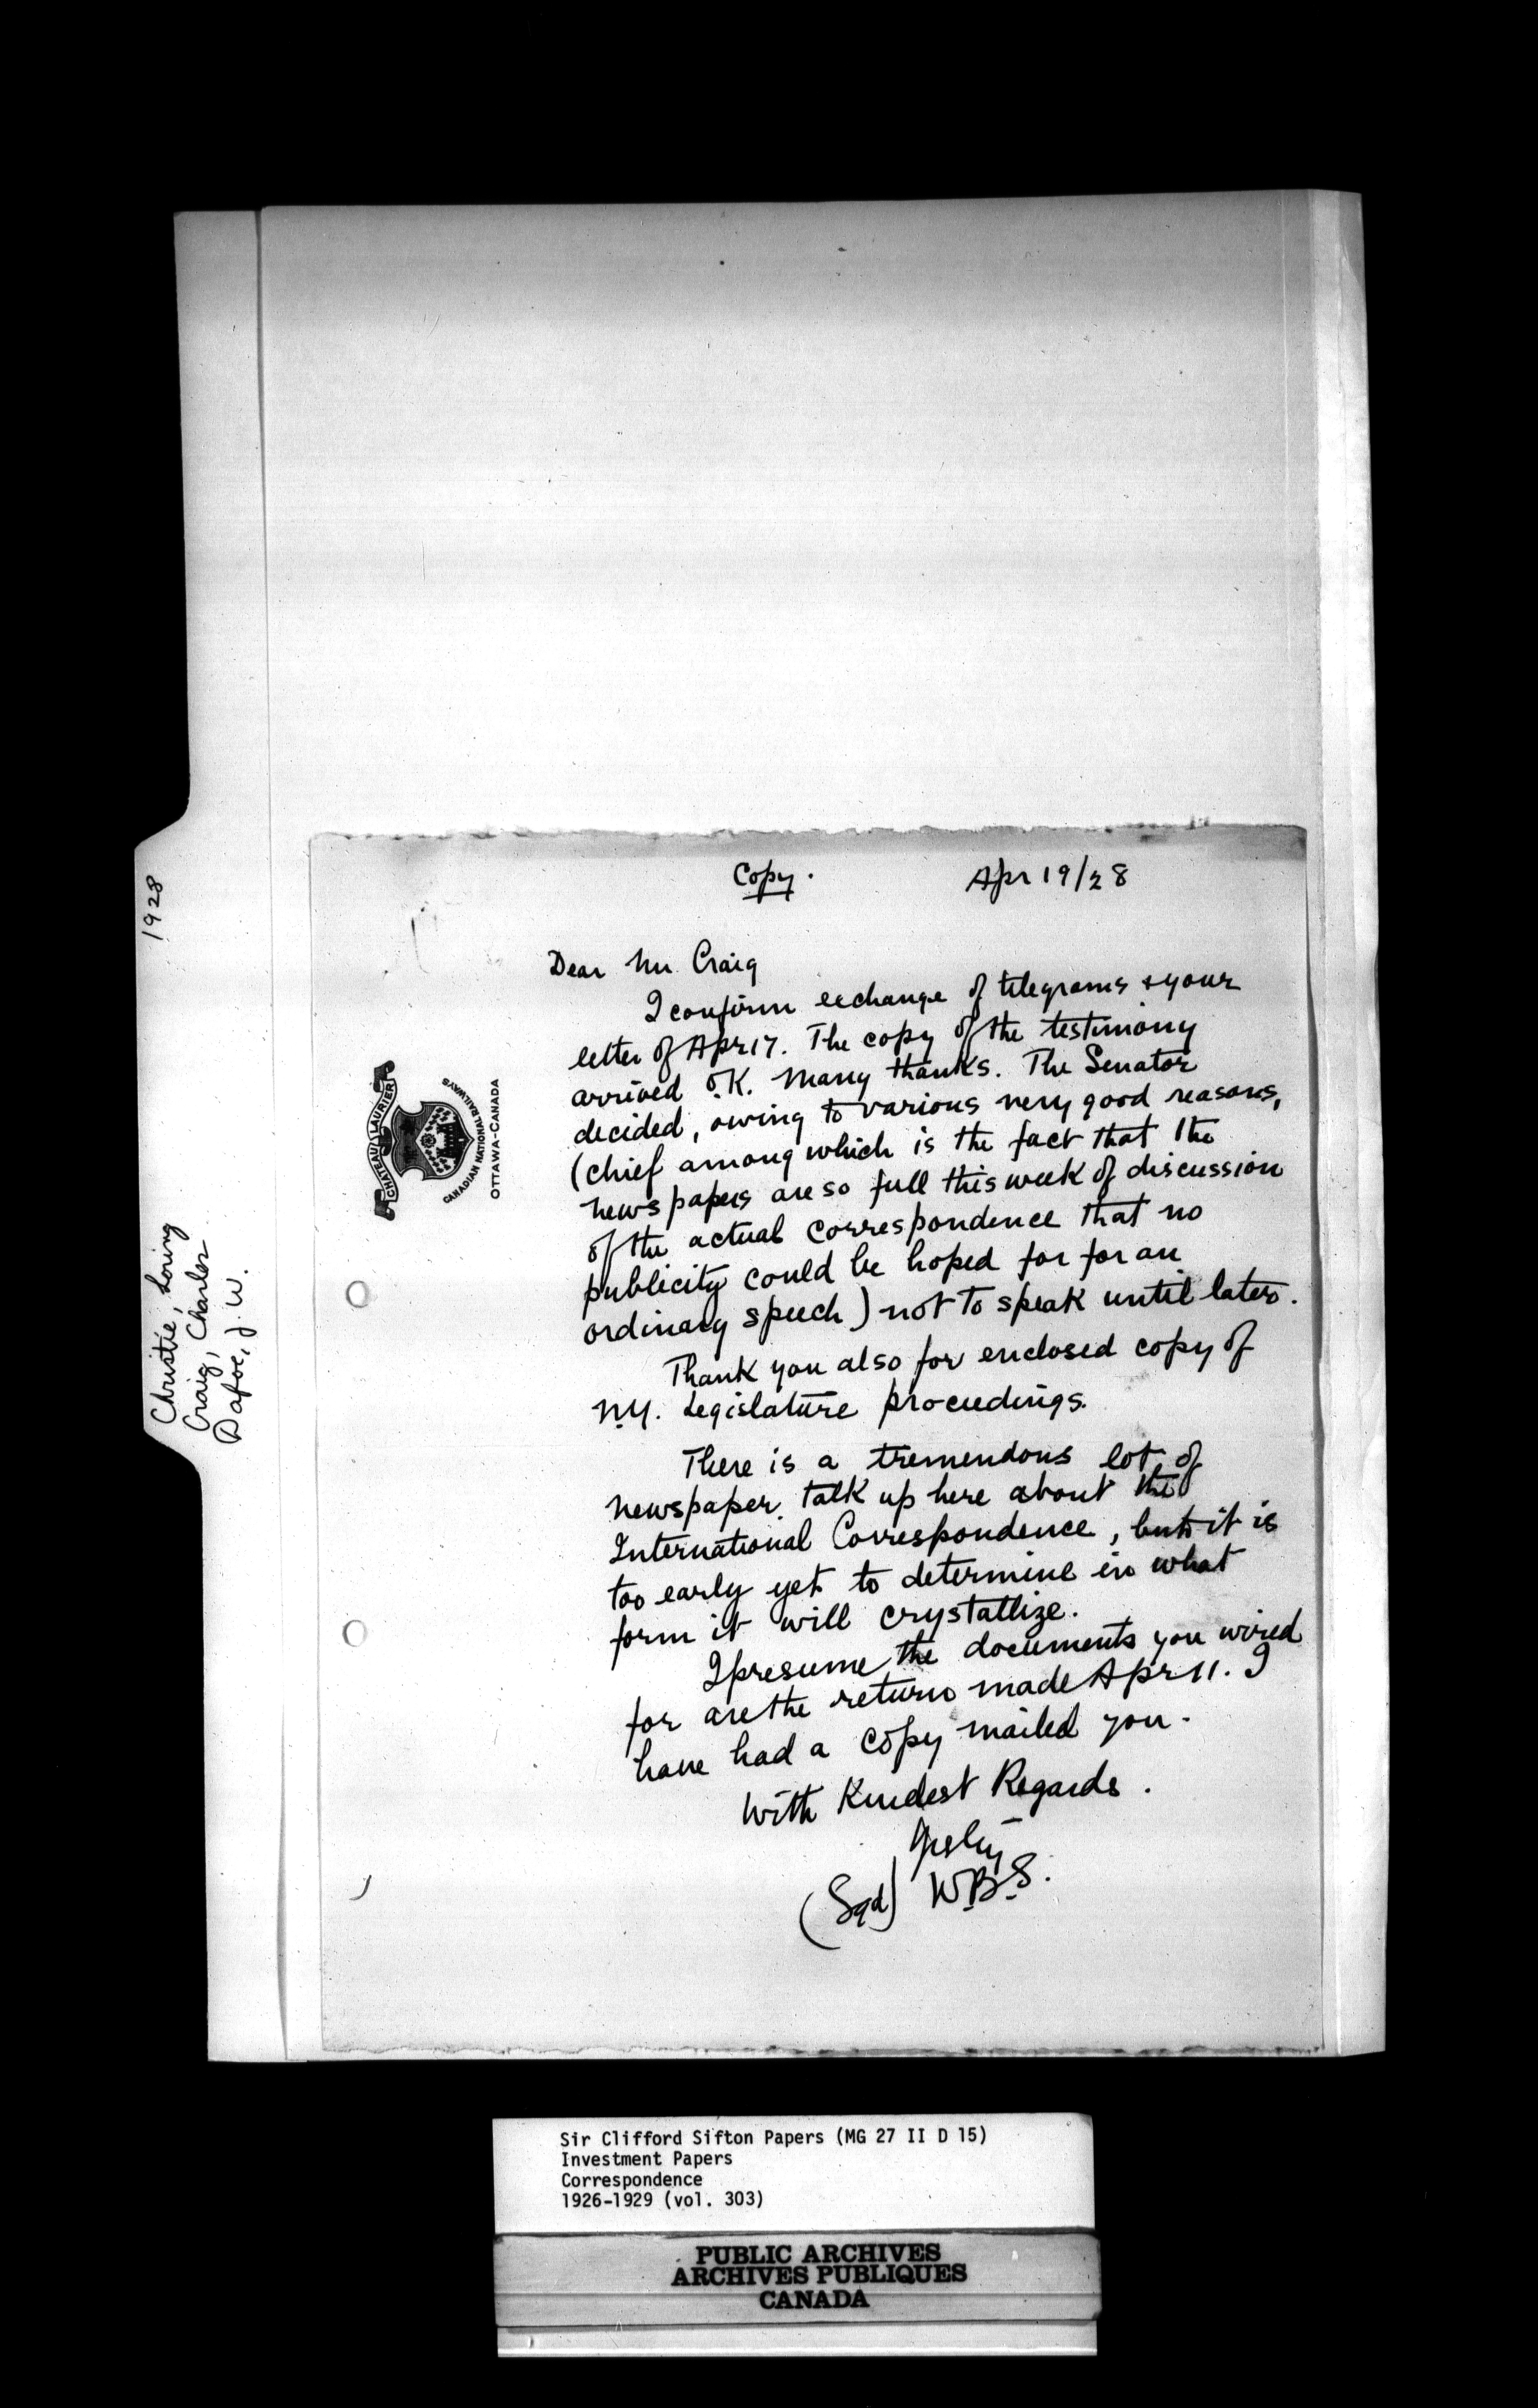 Copy.
Apr 19/28
Dear Mr. Craig
I confirm exchange of telegrams & your
letter of Apr 17. The copy of the testimony
arrived O.K. Many thanks. The Senator
decided, owing to various very good reasons,
(chief among which is the fact that the
newspapers are so full this week of discussion
of the actual correspondence that no
publicity could be hoped for for an
ordinary speech) not to speak until later.
Thank you also for enclosed copy of
N.Y. Legislature proceedings.
There is a tremendous lot of
newspaper talk up here about the
International Correspondence, but it is
too early yet to determine in what
form it will crystallize.
I presume the documents you wired
for are the return made Apr 11. I
have had a copy mailed you.
With Kindest Regards.
(Sgd) W.B.S.
CHATEAU LAURIER
CANADIAN NATIONAL RAILWAYS
OTTAWA-CANADA
1928
Christie, Loring
Craig, Charles
Dafoe, J. W.
Sir Clifford Sifton Papers (MG 27 II D 15)
Investment Papers
Correspondence
1926-1929 (vol. 303)
PUBLIC ARCHIVES
ARCHIVES PUBLIQUES
CANADA